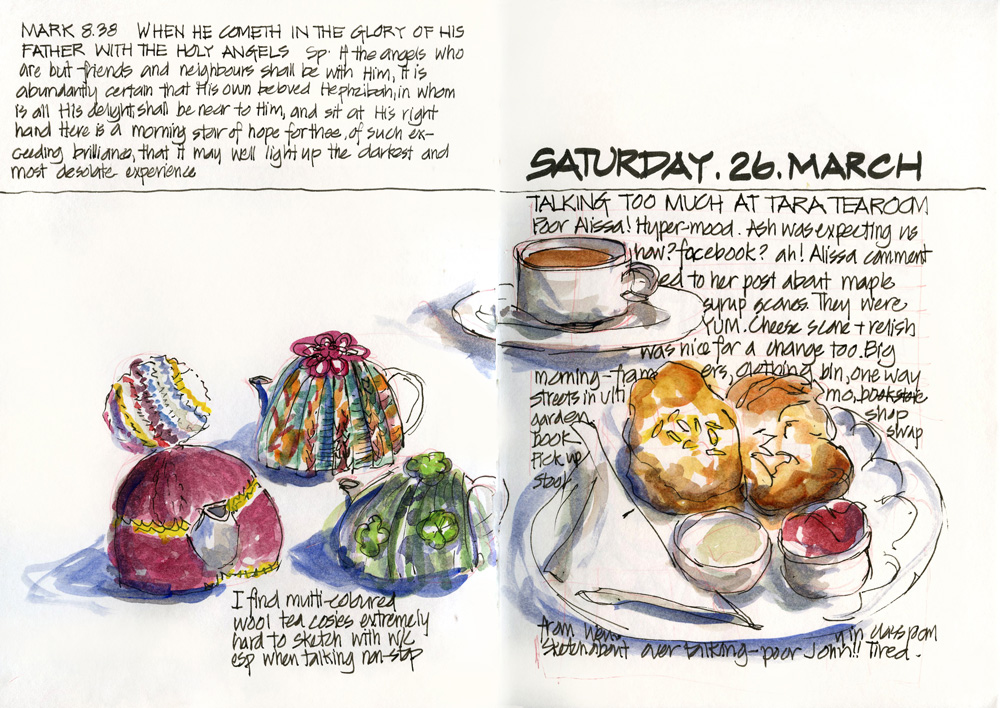 MARK 8.38 WHEN HE COMETH IN THE GLORY OF HIS
FATHER WITH THE HOLY ANGELS Sp. If the angels who
are but friends and neighbours shall be with Him, it is
abundantly certain that His own beloved Hephzibah, in whom
is all His delight, shall be near to Him, and sit at His right
hand Here is a morning star of hope for thee, of such ex-
ceeding brilliance, that it may well light up the darkest and
most desolate experience
SATURDAY. 26. MARCH
TALKING TOO MUCH AT TARA TEAROOM
Poor Alissa! Hyper-mood. Ash was expecting us
how? facebook? ah! Alissa comment
ed to her post about maple
syrup scones. They were
YUM. Cheese scone + relish
was nice for a change too. Big
morning - fram ers, clothing bin, one way
streets in ulti mo, bookstore
garden shop
book swap
Pick up
stool
from
y in classroom
Sketch about over talking - poor John!! Tired.
I find multi-coloured
wool tea cosies extremely
hard to sketch with W/C
esp when talking non-stop